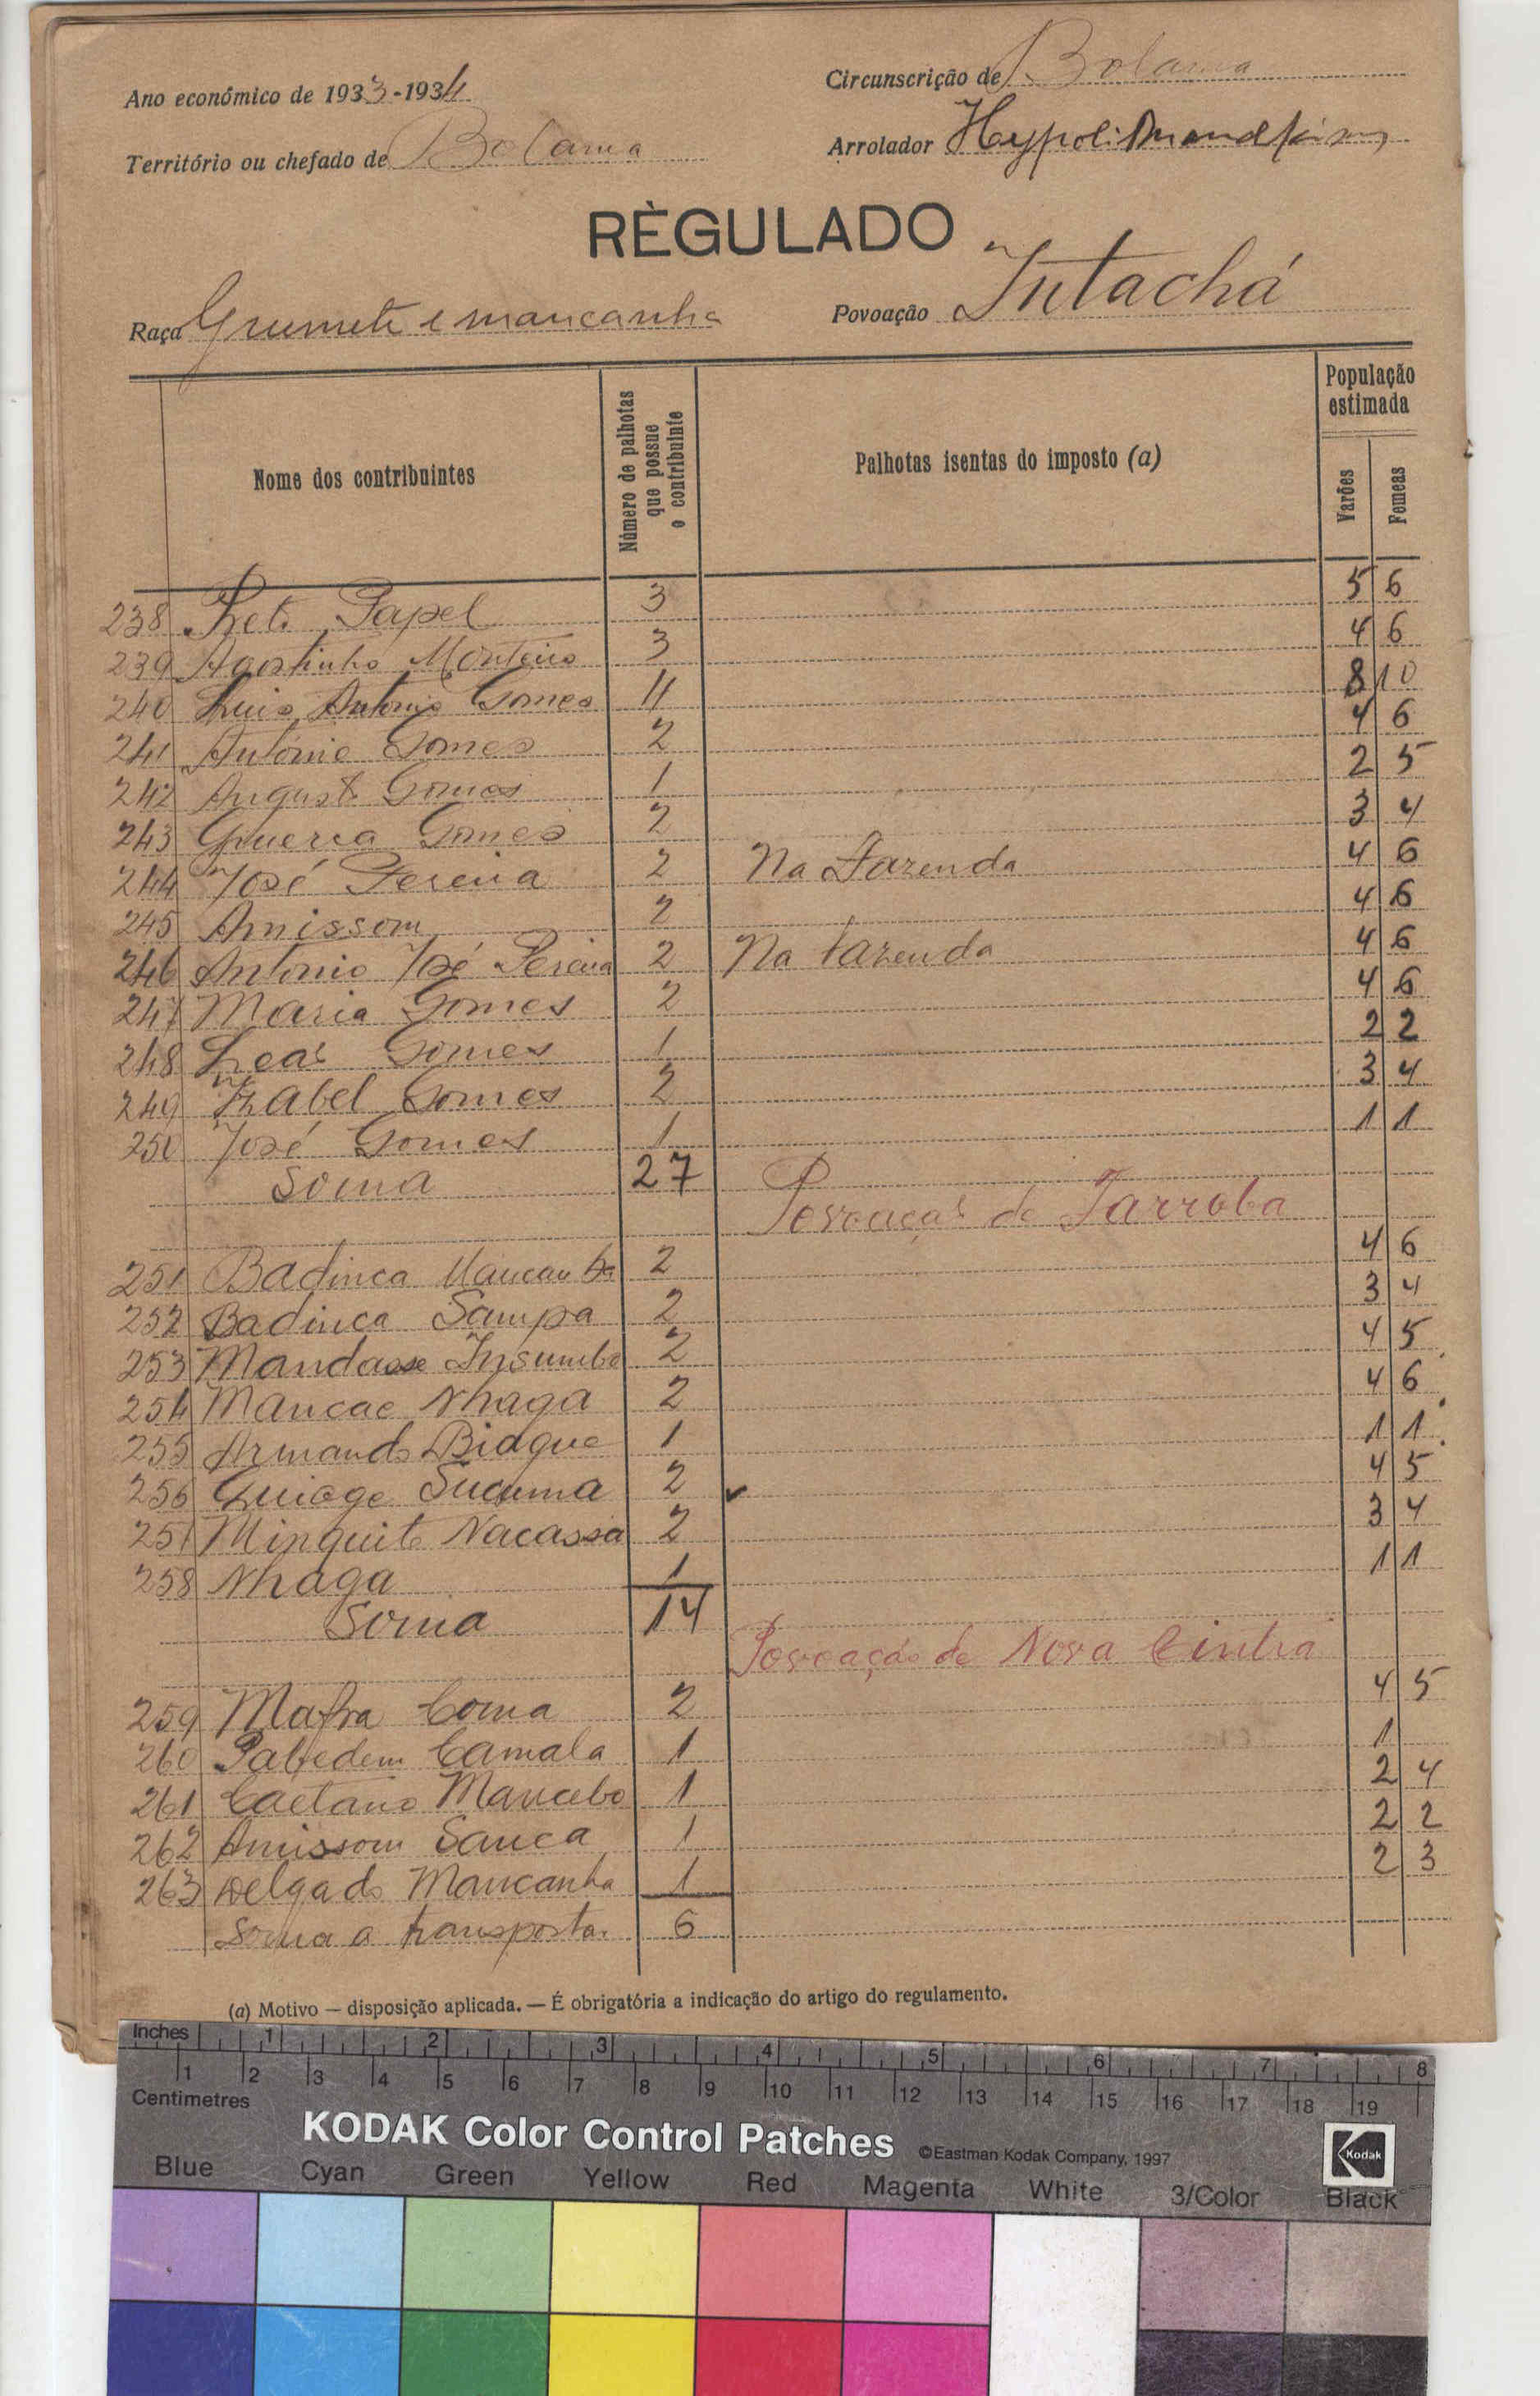 Ano económico de 1933-1934
Circunscrição de Bolama
Território ou chefado de Bolama
Arrolador
RÈGULADO
Raça Grumete e mancanha
Povoação Intachá
Nome dos contribuintes
Número de palhotas que possue o contribuinte
Palhotas isentas do imposto (a)
População estimada
Varões
Femeas
238 Papel 3 5 6
239 Agostinho Monteiro 3 4 6
240 Luis Antonio Gomes 4 8 10
241 António Gomes 2 4 6
242 Augusto Gomes 1 2 5
243 Guerra Gomes 2 3 4
244 José Pereira 2 Na Fazenda 4 6
245 Anissom 2 4 6
246 Antonio José Pereira 2 Na fazenda 4 6
247 Maria Gomes 2 4 6
248 Leal Gomes 1 2 2
249 Izabel Gomes 2 3 4
250 José Gomes 1 1 1
Soma 27
Povoação de Jarroba
251 Badinca Mancanha 2 4 6
252 Badinca Sampa 2 3 4
253 Mandasse Insumbo 2 4 5
254 Mancae Nhaga 2 4 6
255 Armando Biague 1 1 1
256 Sucuma 2 4 5
257 Minguito Nacassa 2 3 4
258 Nhaga 1 1 1
Soma 14
Povoação de Nova Cintra
259 Mafra Coma 2 4 5
260 Camala 1 1
261 Caetano Mancebo 1 2 4
262 Anissom Sanca 1 2 2
263 Delgado Mancanha 1 2 3
Soma a transportar 6
(a) Motivo — disposição aplicada. — É obrigatória a indicação do artigo do regulamento.
Inches 1 2 3 4 5 6 7 8
1 2 3 4 5 6 7 8 9 10 11 12 13 14 15 16 17 18 19
Centimetres
KODAK Color Control Patches ©Eastman Kodak Company, 1997 Kodak
Blue Cyan Green Yellow Red Magenta White 3/Color Black